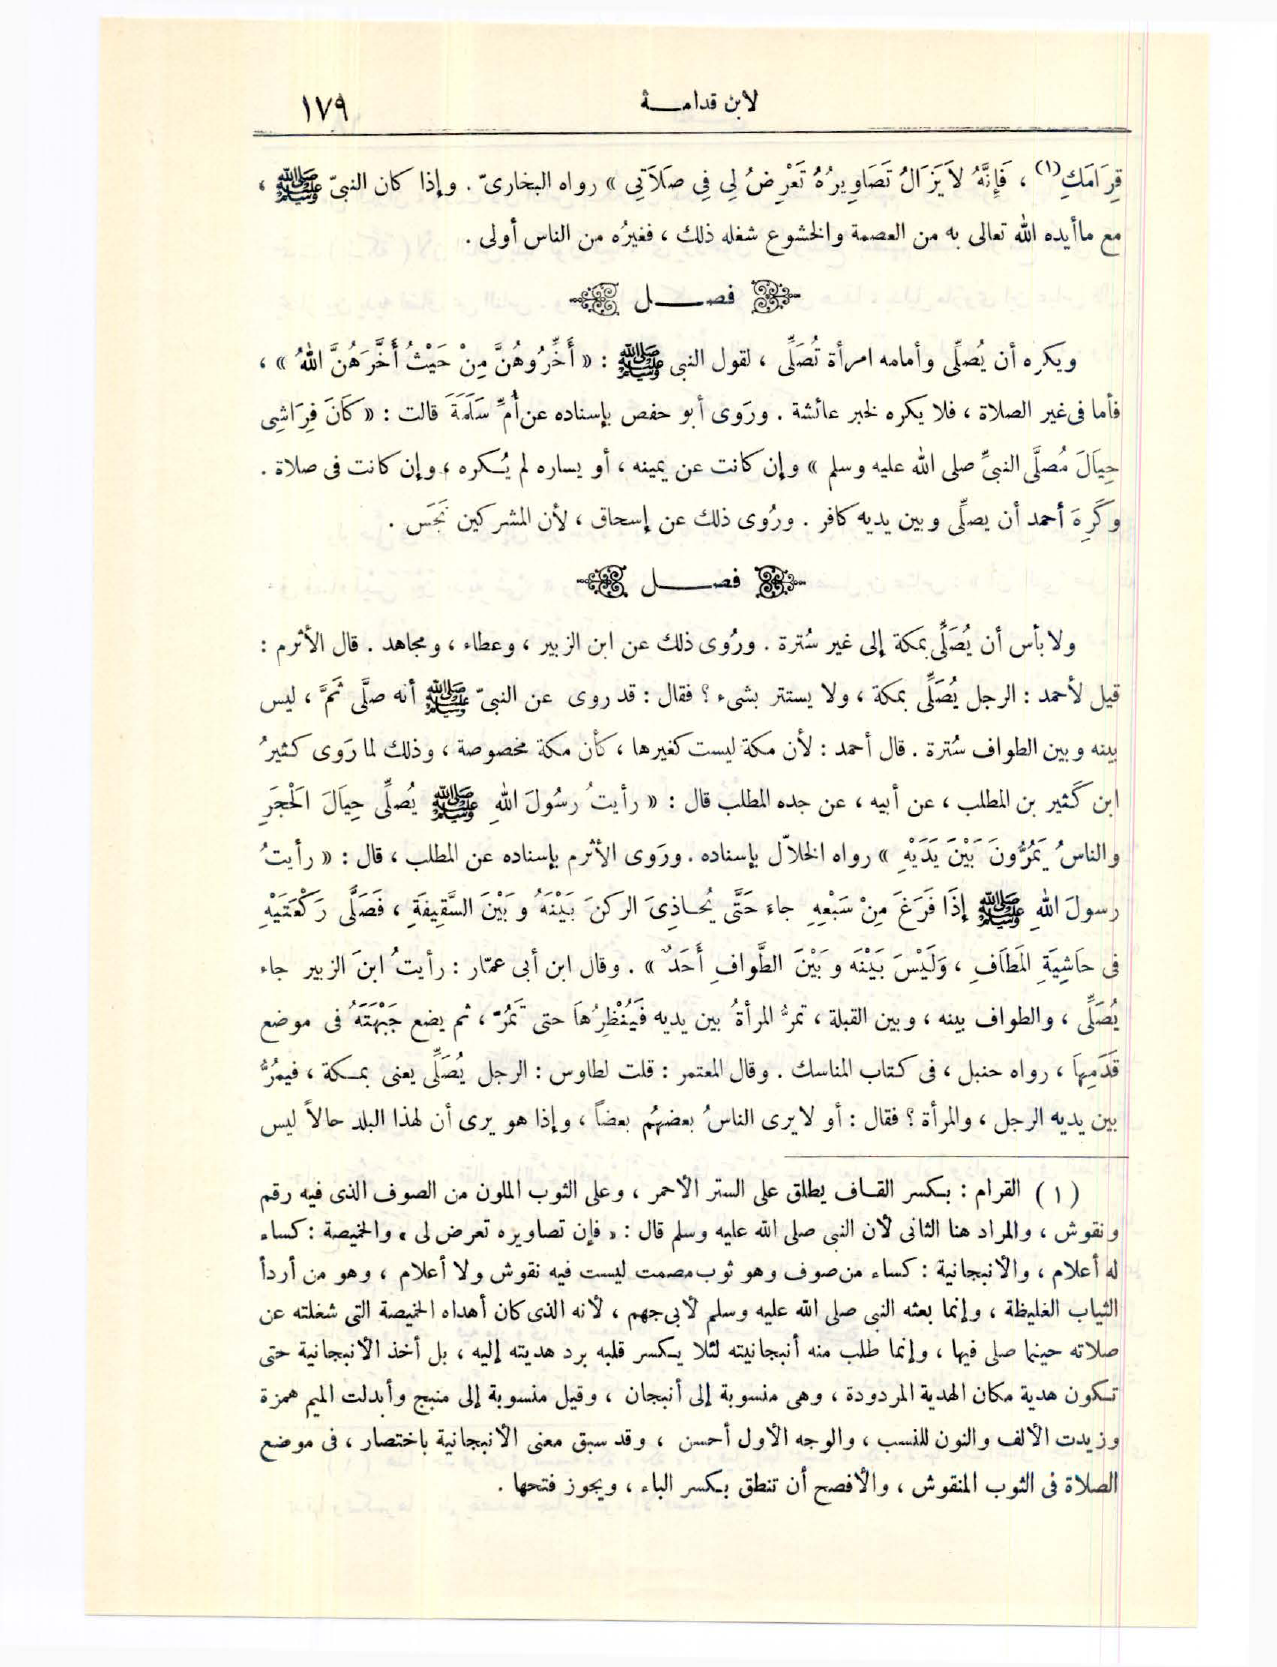 لابن قدامـــة ١٧٩
قِرَامَكِ(١) ، فَإِنَّهُ لاَ يَزَالُ تَصَاوِيرُهُ تَعْرِضُ لِي فِي صَلاَتِي » رواه البخارىّ . وإذا كان النبىّ ﷺ ،
مع ما أيده الله تعالى به من العصمة والخشوع شغله ذلك ، فغيرُه من الناس أولى .
فصـــل
ويكره أن يُصلِّى وأمامه امرأة تُصَلِّى ، لقول النبى ﷺ : « أَخِّرُوهُنَّ مِنْ حَيْثُ أَخَّرَهُنَّ اللهُ » ،
فأما فى غير الصلاة ، فلا يكره لخبر عائشة . ورَوى أبو حفص بإسناده عن أُمِّ سَلَمَةَ قالت : « كَانَ فِرَاشِى
حِيَالَ مُصلَّى النبىِّ صلى الله عليه وسلم » وإن كانت عن يمينه ، أو يساره لم يُكره ، وإن كانت فى صلاة .
وكَرِهَ أحمد أن يصلِّى وبين يديه كافر . ورُوى ذلك عن إسحاق ، لأن المشركين نَجَس .
فصـــل
ولا بأس أن يُصَلِّى بمكة إلى غير سُترة . ورُوى ذلك عن ابن الزبير ، وعطاء ، ومجاهد . قال الأثرم :
قيل لأحمد : الرجل يُصَلِّى بمكة ، ولا يستتر بشىء ؟ فقال : قد روى عن النبىّ ﷺ أنه صلَّى ثَمَّ ، ليس
بينه وبين الطواف سُترة . قال أحمد : لأن مكة ليست كغيرها ، كأن مكة مخصوصة ، وذلك لما رَوى كثيرُ
ابن كَثير بن المطلب ، عن أبيه ، عن جده المطلب قال : « رأيتُ رسُولَ اللهِ ﷺ يُصلِّى حِيَالَ الْحَجَرِ
والناسُ يَمُرُّونَ بَيْنَ يَدَيْهِ » رواه الخلاّل بإسناده . ورَوى الأثرم بإسناده عن المطلب ، قال : « رأيتُ
رسولَ اللهِ ﷺ إذَا فَرَغَ مِنْ سَبْعِهِ جاءَ حَتَّى يُحـاذِىَ الركنَ بَيْنَهُ وبَيْنَ السَّقِيفَةِ ، فَصَلَّى رَكْعَتَيْهِ
فى حَاشِيَةِ المَطَافِ ، وَلَيْسَ بَيْنَه وبَيْنَ الطَّوافِ أَحَدٌ » . وقال ابن أبى عمّار : رأيتُ ابنَ الزبير جاء
يُصَلِّى ، والطواف بينه ، وبين القبلة ، تمرُّ المرأةُ بين يديه فَيُنْظِرُهاَ حتى تَمُرّ ، ثم يضع جَبْهَتَهُ فى موضع
قَدَمِهاَ ، رواه حنبل ، فى كتاب المناسك . وقال المعتمر : قلت لطاوس : الرجل يُصَلِّى يعنى بمكة ، فيمُرُّ
بين يديه الرجل ، والمرأة ؟ فقال : أو لا يرى الناسُ بعضهُم بعضاً ، وإذا هو يرى أن لهذا البلد حالاً ليس
(١) القرام : بكسر القـاف يطلق على الستر الأحمر ، وعلى الثوب الملون من الصوف الذى فيه رقم
ونقوش ، والمراد هنا الثانى لأن النبى صلى الله عليه وسلم قال : « فإن تصاويره تعرض لى » والخميصة : كساء
له أعلام ، والأنبجانية : كساء من صوف وهو ثوب مصمت ليست فيه نقوش ولا أعلام ، وهو من أردأ
الثياب الغليظة ، وإنما بعثه النبى صلى الله عليه وسلم لأبى جهم ، لأنه الذى كان أهداه الخميصة التى شغلته عن
صلاته حينما صلى فيها ، وإنما طلب منه أنبجانيته لئلا يكسر قلبه برد هديته إليه ، بل أخذ الأنبجانية حتى
تكون هدية مكان الهدية المردودة ، وهى منسوبة إلى أنبجان ، وقيل منسوبة إلى منبج وأبدلت الميم همزة
وزيدت الألف والنون للنسب ، والوجه الأول أحسن ، وقد سبق معنى الأنبجانية باختصار ، فى موضع
الصلاة فى الثوب المنقوش ، والأفصح أن تنطق بكسر الباء ، ويجوز فتحها .